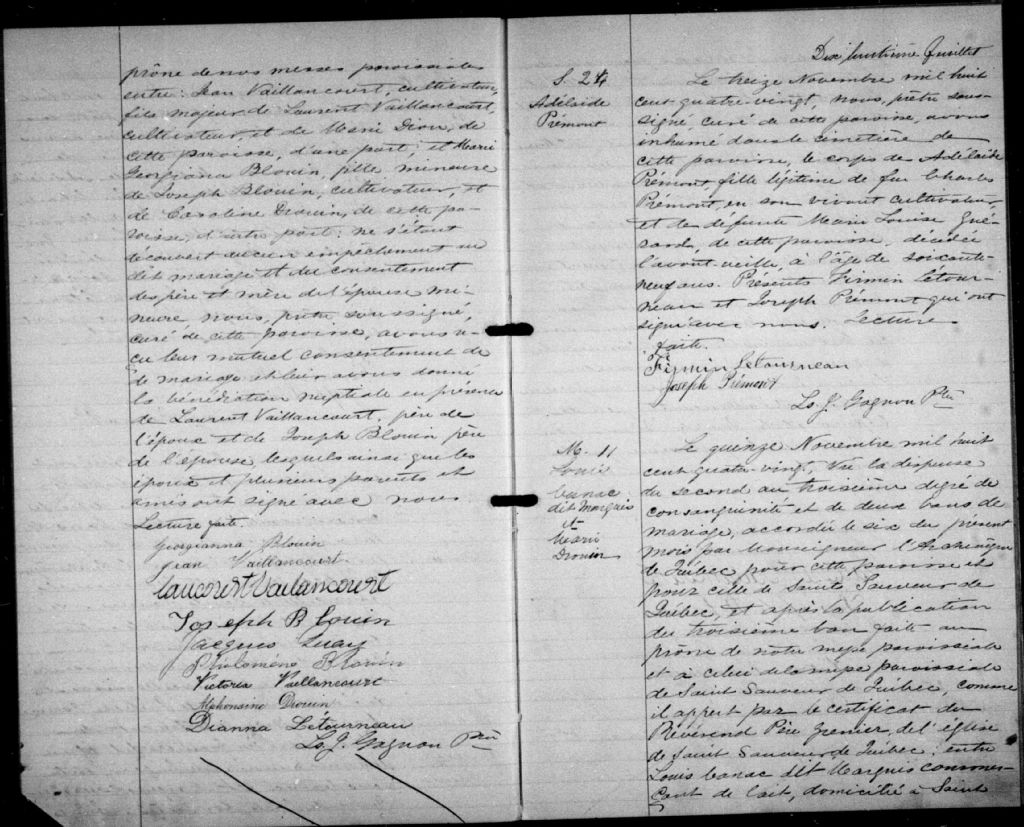 prône de nos messes paroissiales
entre: Jean Vaillancourt, cultivateur,
fils majeur de Laurent Vaillancourt,
cultivateur, et de Marie Dion, de
cette paroisse, d'une part; et Marie
Georgiana Blouin, fille mineure
de Joseph Blouin, cultivateur, et
de Caroline Drouin, de cette pa-
roisse, d'autre part: ne s'étant
découvert aucun empêchement au
dit mariage et du consentement
des père et mère de l'épouse mi-
neure nous, prêtre soussigné,
curé de cette paroisse, avons re-
çu leur mutuel consentement de
de mariage et leur avons donné
la bénédiction nuptiale en présence
de Laurent Vaillancourt, père de
l'époux et de Joseph Blouin père
de l'épouse, lesquels ainsi que les
époux et plusieurs parents et
amis ont signé avec nous
Lecture faite.
Georgianna Blouin
Jean Vaillancourt
Laucourt Vailancourt
Joseph Blouin
Jacques
Philomène Blouin
Victoria Vaillancourt
Alphonsine Drouin
Dianna Létourneau
Ls. J. Gagnon Ptre
Dix huitième feuillet
S. 24
Adélaide
Prémont
Le treize Novembre mil huit
cent quatre-vingt, nous, prêtre sous-
signé, curé de cette paroisse, avons
inhumé dans le cimetière de
cette paroisse, le corps de Adélaide
Prémont, fille légitime de feu Charles
Prémont, en son vivant cultivateur
et de défunte Marie Louise Gué-
rard, de cette paroisse, décédée
l'avant-veille, à l'âge de soixante-
neuf ans. Présents Firmin Létour-
neau et Joseph Prémont qui ont
signé avec nous. Lecture
faite.
Firmin Letourneau
Joseph Prémont
Ls. J. Gagnon Ptre
M. 11
Louis
Canac
dit Marquis
et
Marie
Drouin
Le quinze Novembre mil huit
cent quatre-vingt, Vu la dispense
du second au troisième degré de
consanguinité et de deux bans de
mariage, accordée le six du présent
mois par Monseigneur l'Archevêque
de Québec pour cette paroisse et
pour celle de Saint Sauveur de
Québec, et après la publication
du troisième ban faite au
prône de notre messe paroissiale
et à celui de la messe paroissiale
de Saint Sauveur de Québec, comme
il appert par le certificat du
Révérend Père Grenier, de l'église
de Saint Sauveur de Québec: entre
Louis Canac dit Marquis commer-
çant de lait, domicilié à Saint